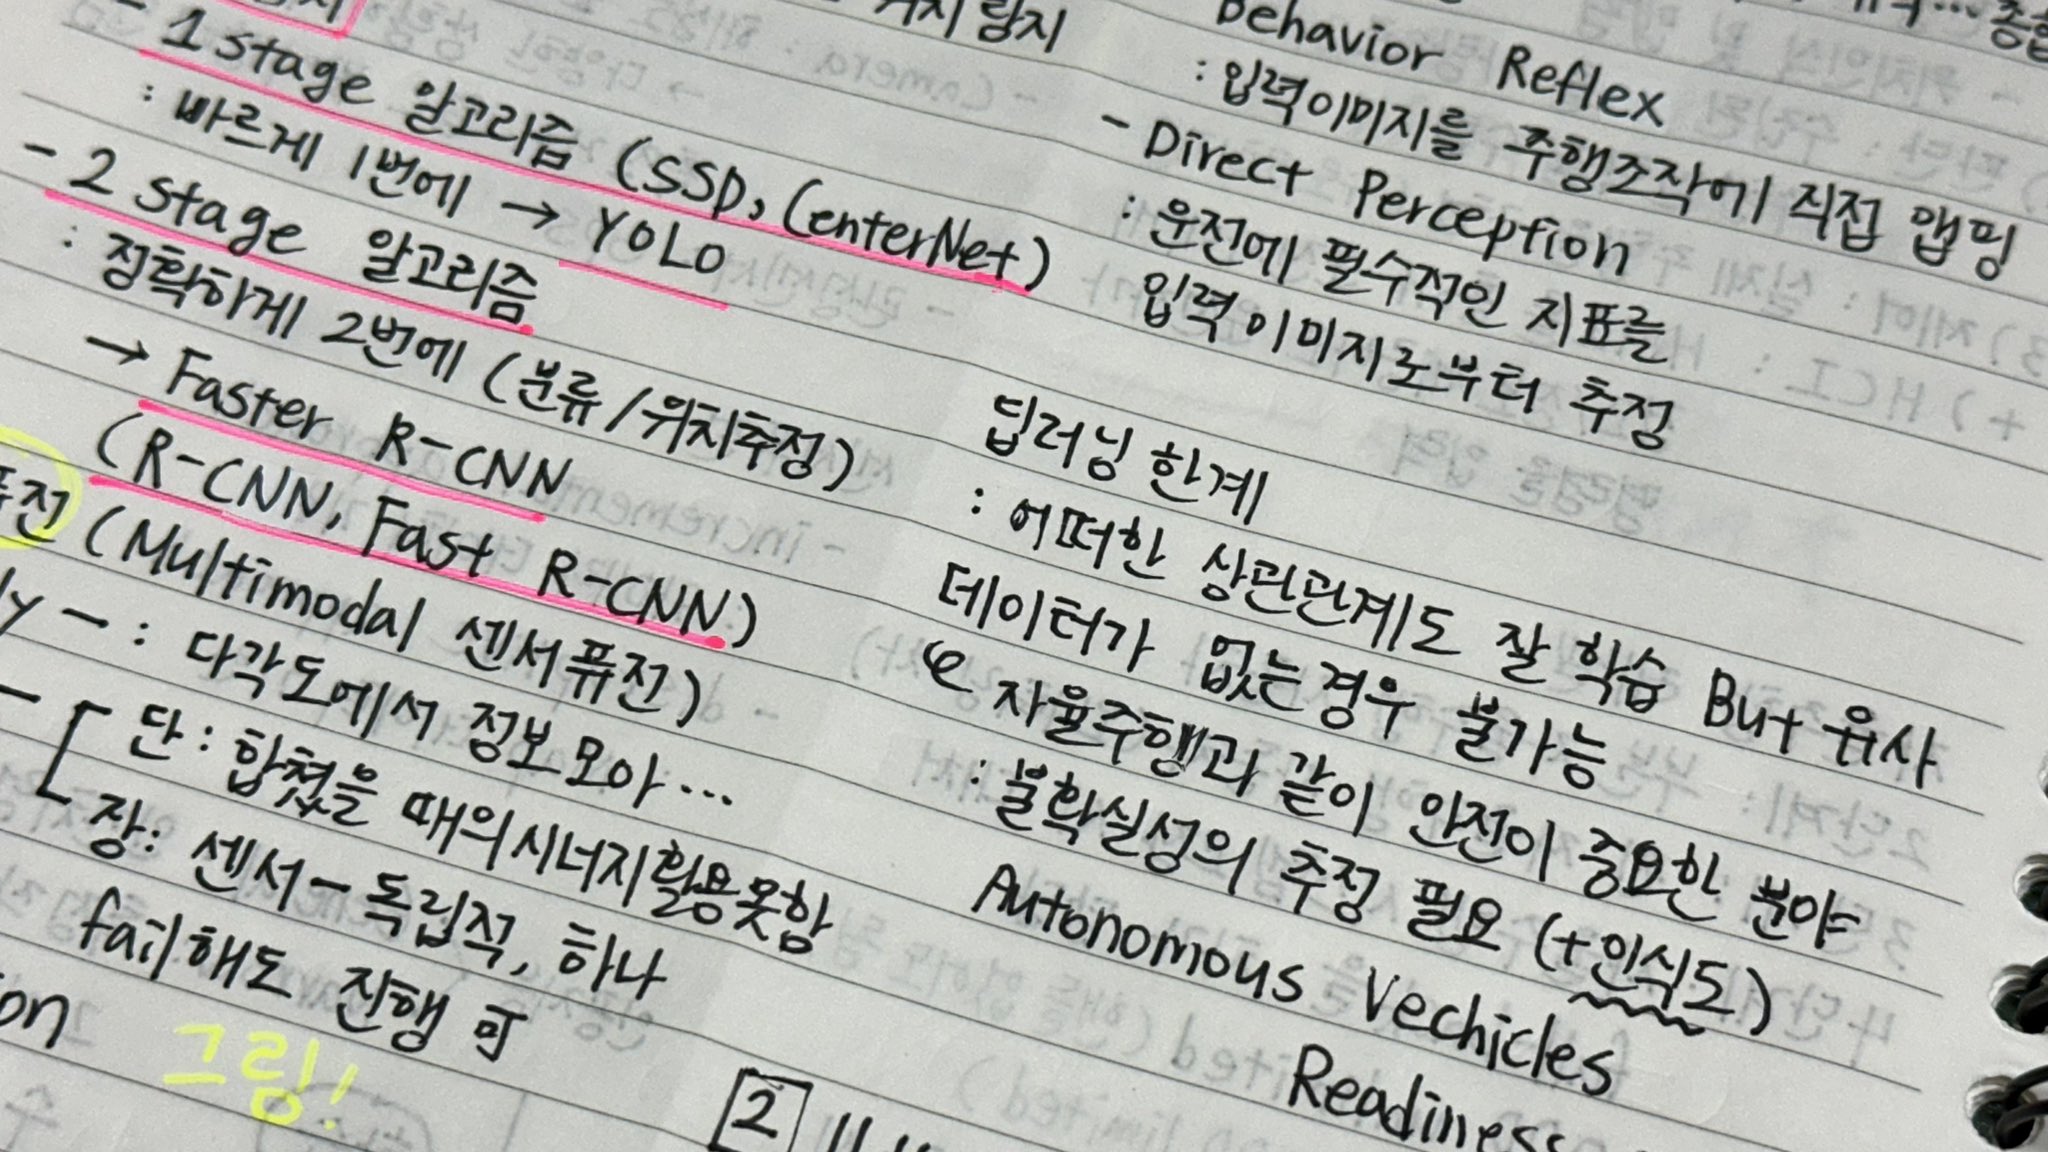 - 1 stage 알고리즘 (SSD, CenterNet)
: 빠르게 1번에 → YOLO
- 2 stage 알고리즘
: 정확하게 2번에 (분류/위치추정)
→ Faster R-CNN
(R-CNN, Fast R-CNN)
퓨전 (Multimodal 센서퓨전)
ly - : 다각도에서 정보모아...
단: 합쳤을 때의시너지활용못함
장: 센서-독립적, 하나
fail해도 진행 可
그림!
Behavior Reflex
: 입력이미지를 주행조작에 직접 맵핑
- Direct Perception
: 운전에 필수적인 지표를
입력이미지로부터 추정
딥러닝 한계
: 어떠한 상관관계도 잘 학습 But 유사
데이터가 없는경우 불가능
자율주행과 같이 안전이 중요한 분야
: 불확실성의 추정 필요 (+인식도)
Autonomous Vechicles
Readiness
2